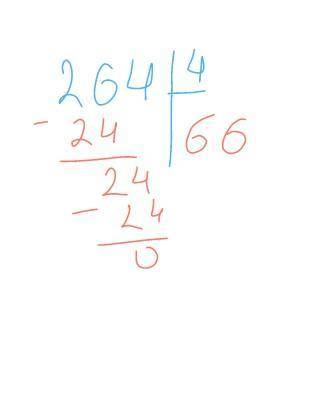 264 | 4
- 24 | 66
24
- 24
0